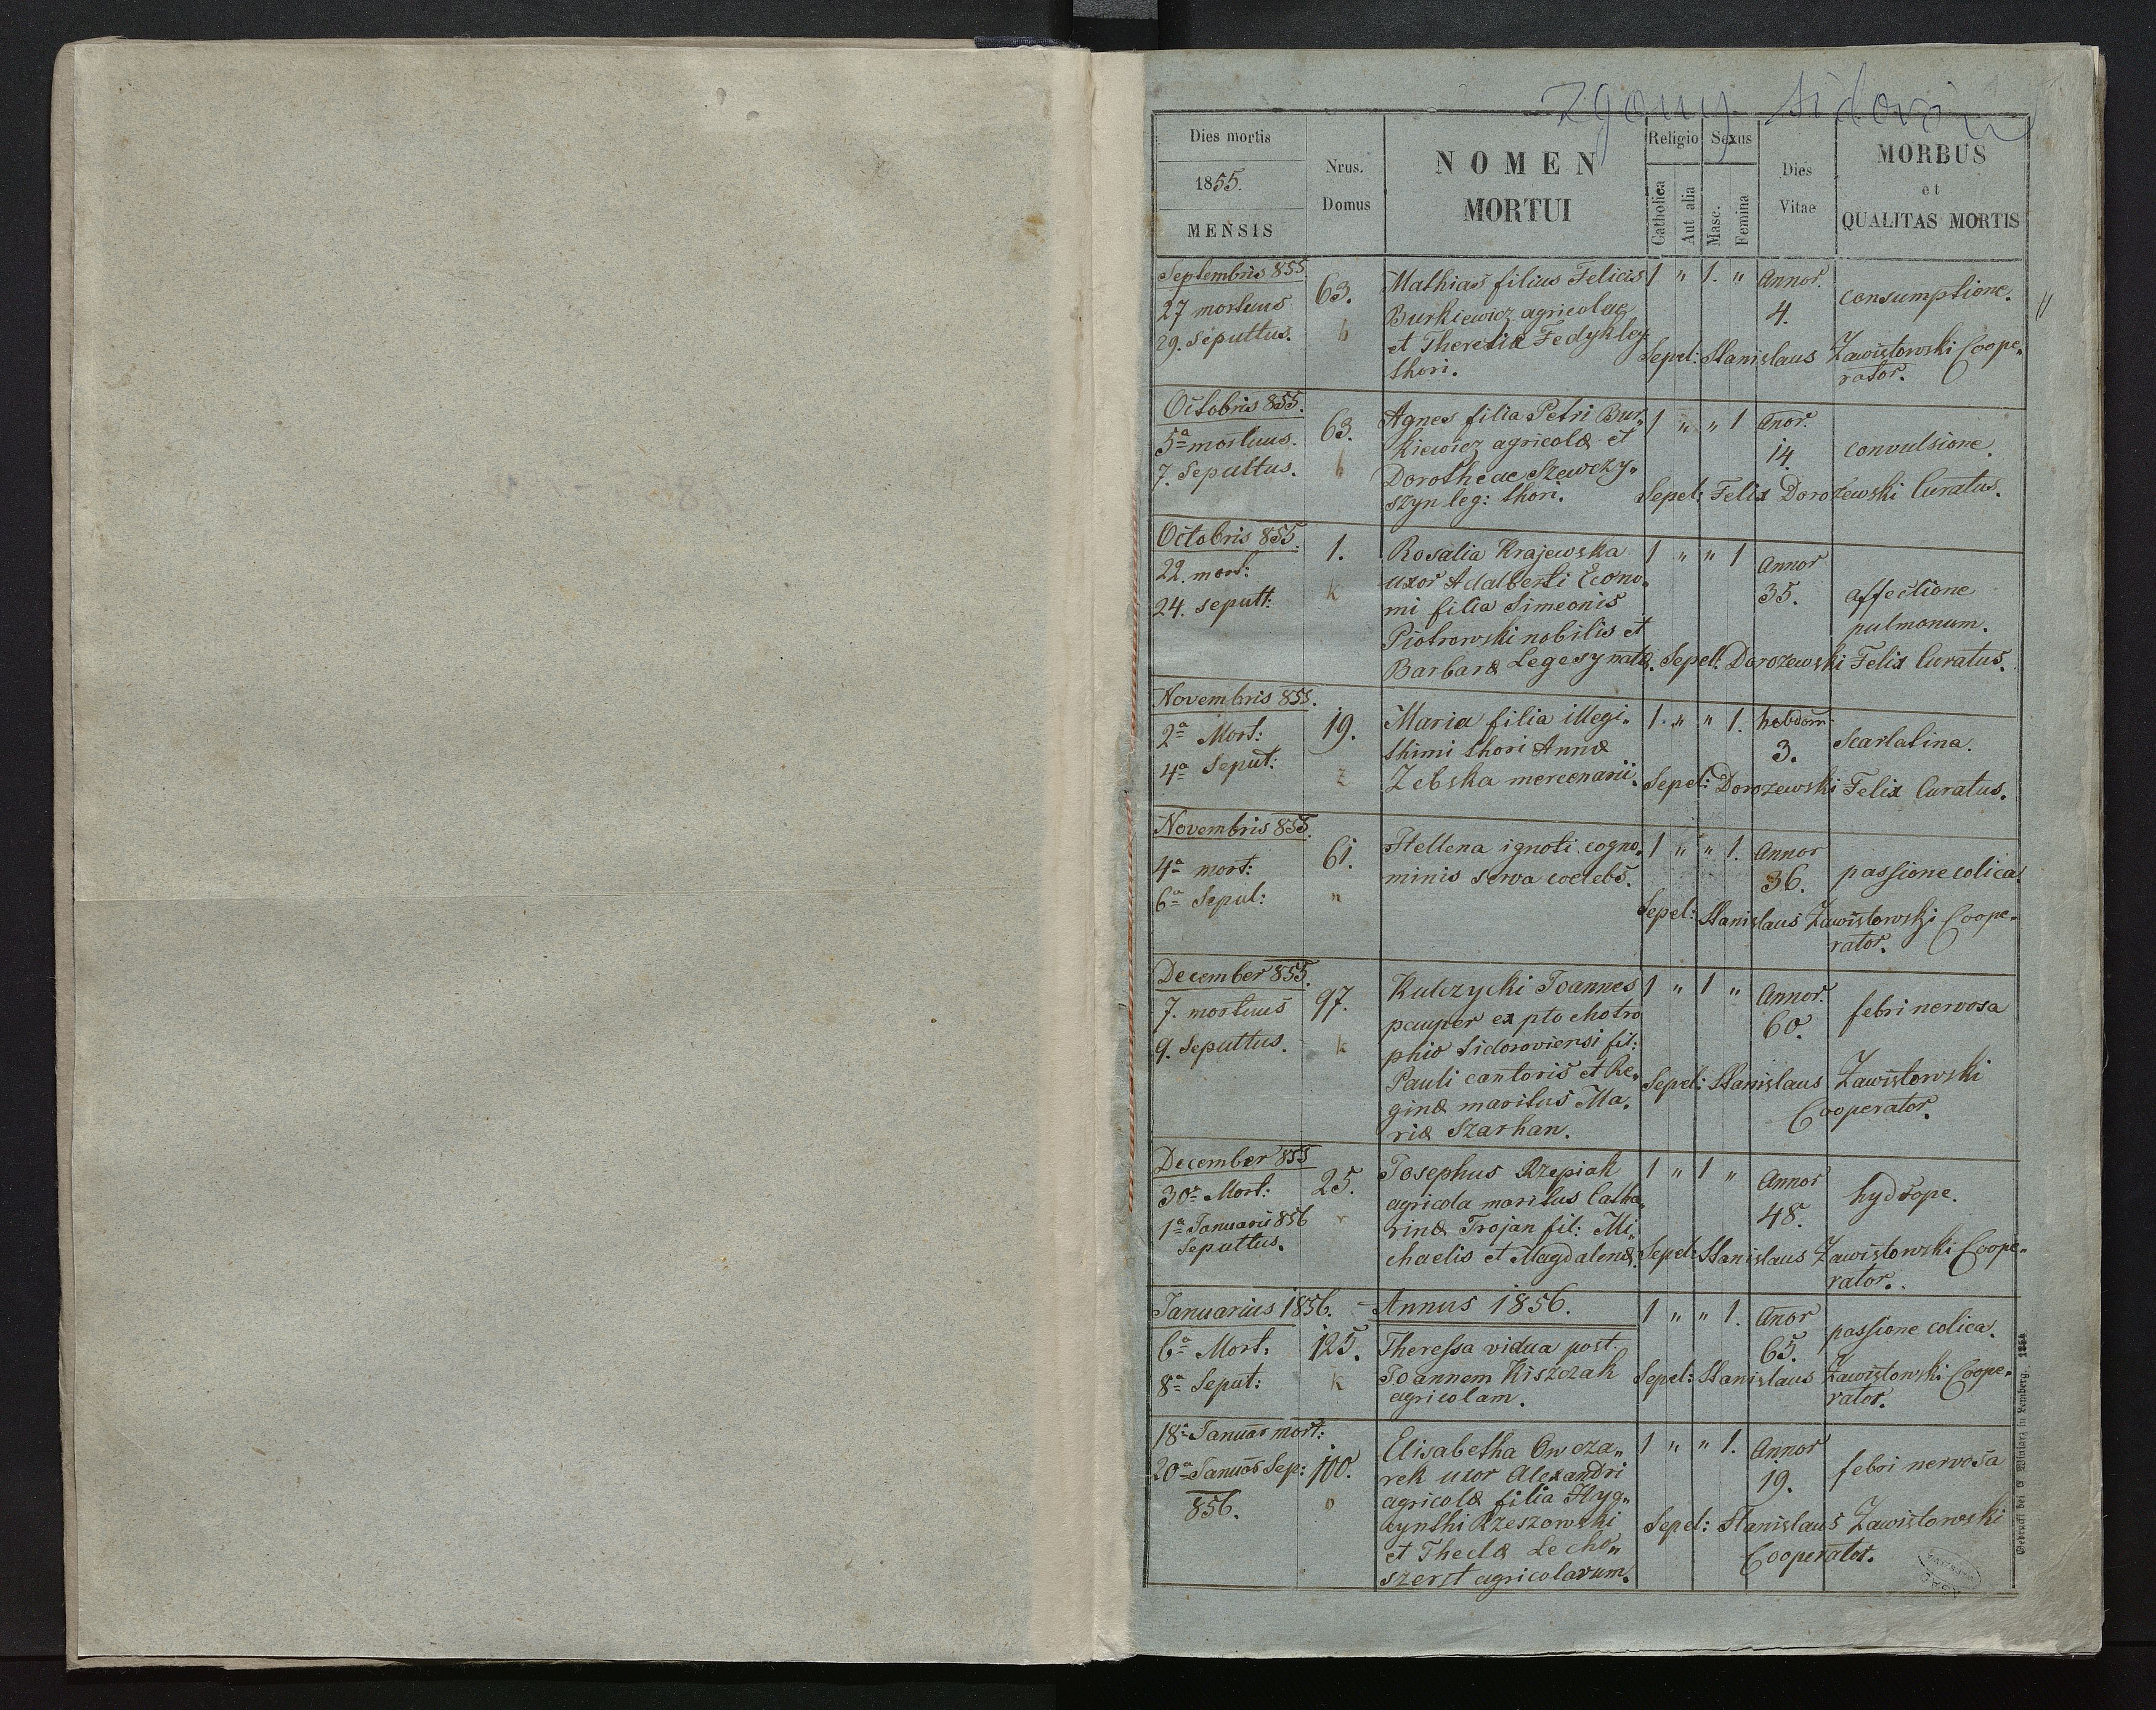 zgony Sidorów
Dies mortis
1855.
MENSIS
Nrus.
Domus
NOMEN
MORTUI
Religio
Catholica
Aut alia
Sexus
Masc.
Femina
Dies
Vitae
MORBUS
et
QUALITAS MORTIS
Septembris 855
27 mortuus
29. Sepultus.
63.
b
Mathias filius Felicis
Burkiewicz agricolae
et Theresia Fedyk leg.
thori.
1 " 1. "
Annor.
4.
consumptione.
Sepel: Stanislaus Zawistowski Coope„
rator.
Octobris 855.
5ª mortuus.
7. Sepultus.
63.
b
Agnes filia Petri Bur„
kiewicz agricolæ et
Dorotheae Szewczy„
szyn leg: thori.
1 " " 1
Anor.
14.
convulsione.
Sepel: Felix Dorożewski Curatus.
Octobris 855.
22. mort:
24. sepult:
1.
k
Rosalia Krajewska
uxor Adalberti Econo„
mi filia Simeonis
Piotrowski nobilis et
Barbaræ
1 " " 1
Annor
35.
affectione
pulmonum.
Sepel: Dorozewski Felix Curatus.
Novembris 855.
2ª Mort:
4ª Sepult:
19.
z
Maria filia illegi„
thimi thori Annæ
Zebska mercenarii.
1. " " 1.
hebdom:
3.
Scarlatina.
Sepel: Dorozewski Felix Curatus.
Novembris 855.
4ª mort:
6ª Sepul:
61.
n
Hellena ignoti cogno„
minis serva coelebs.
1 " " 1.
Annor
36.
passione colica.
Sepel: Stanislaus Zawistowski Coope„
rator.
December 855.
7. mortuus
9. Sepultus.
97.
k
Kulczycki Joannes
pauper ex ptochotro
phio Sidoroviensi fil:
Pauli cantoris et Re„
ginæ maritus Ma„
riæ Szarhan.
1 " 1 "
Annor.
60.
febri nervosa
Sepel: Stanislaus Zawistowski
Cooperator.
December 855
30ª Mort:
1ª Januarii 856
Sepultus.
25.
r
Josephus Rzepiak
agricola maritus Catha„
rinæ Trojan fil: Mi„
chaelis et Magdalenæ.
1 " 1 "
Annor
48.
hydrope.
Sepel: Stanislaus Zawistowski Coope„
rator.
Januarius 1856. – Annus 1856.
6ª Mort:
8ª Sepult:
125.
k
Theressa vidua post
Joannem Kiszczak
agricolam.
1 " " 1.
Anor
65.
passione colica.
Sepel: Stanislaus Zawistowski Coope„
rator.
18ª Januar mort:
20ª Januar Sep:
856.
100.
o
Elisabetha Owcza„
rek uxor Alexandri
agricolæ filia Hyg„
cynthi Rzeszowski
et Theclæ Lecho„
szerst agricolarum.
1 " " 1.
Annor
19.
febri nervosa
Sepel: Stanislaus Zawistowski
Cooperator.
Gedruckt bei E. Winiarz in Lemberg. 1854